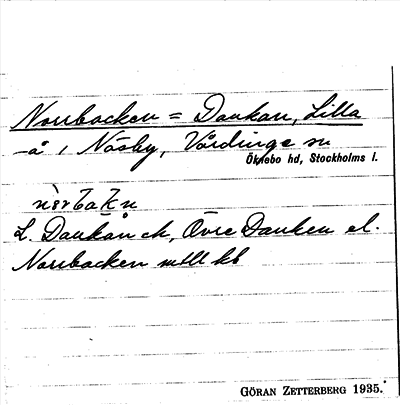 Norrbacken = Dankan, Lilla
-å, Näsby, Vårdinge sn
Öknebo hd, Stockholms l.
L. Dankan ek, Övre Danken el.
Norrbacken mtll kb
GÖRAN ZETTERBERG 1935.